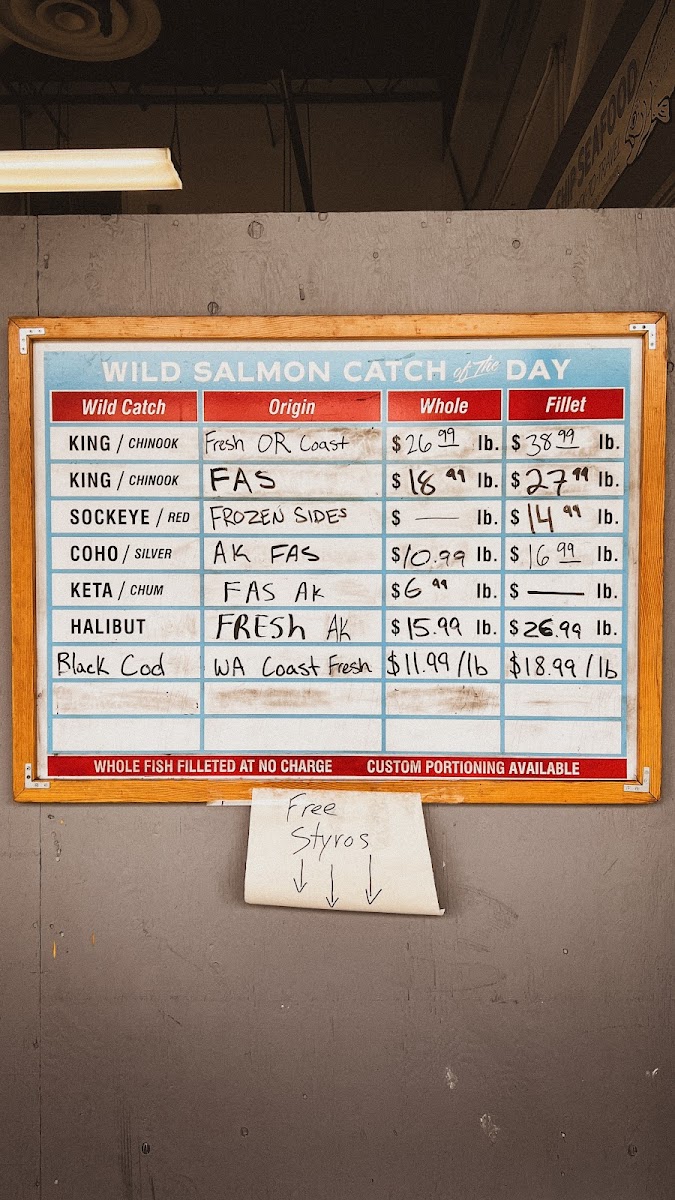 SHIP SEAFOOD
WILD SALMON CATCH of the DAY
Wild Catch Origin Whole Fillet
KING / CHINOOK Fresh OR Coast $26 99 lb. $38 99 lb.
KING / CHINOOK FAS $18 99 lb. $27 99 lb.
SOCKEYE / RED FROZEN SIDES $ — lb. $14 99 lb.
COHO / SILVER AK FAS $10.99 lb. $16 99 lb.
KETA / CHUM FAS AK $6 99 lb. $ — lb.
HALIBUT FRESH AK $15.99 lb. $26.99 lb.
Black Cod WA Coast Fresh $11.99 /lb $18.99 /lb
WHOLE FISH FILLETED AT NO CHARGE CUSTOM PORTIONING AVAILABLE
Free
Styros